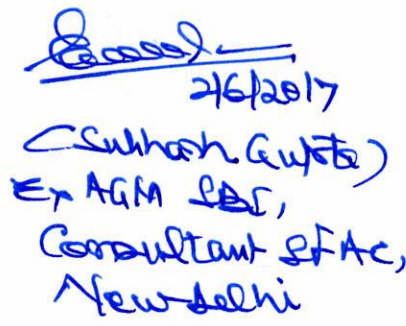 2/6/2017
(Subhash Gupta)
Ex AGM SBI,
Consultant SFAC,
New Delhi